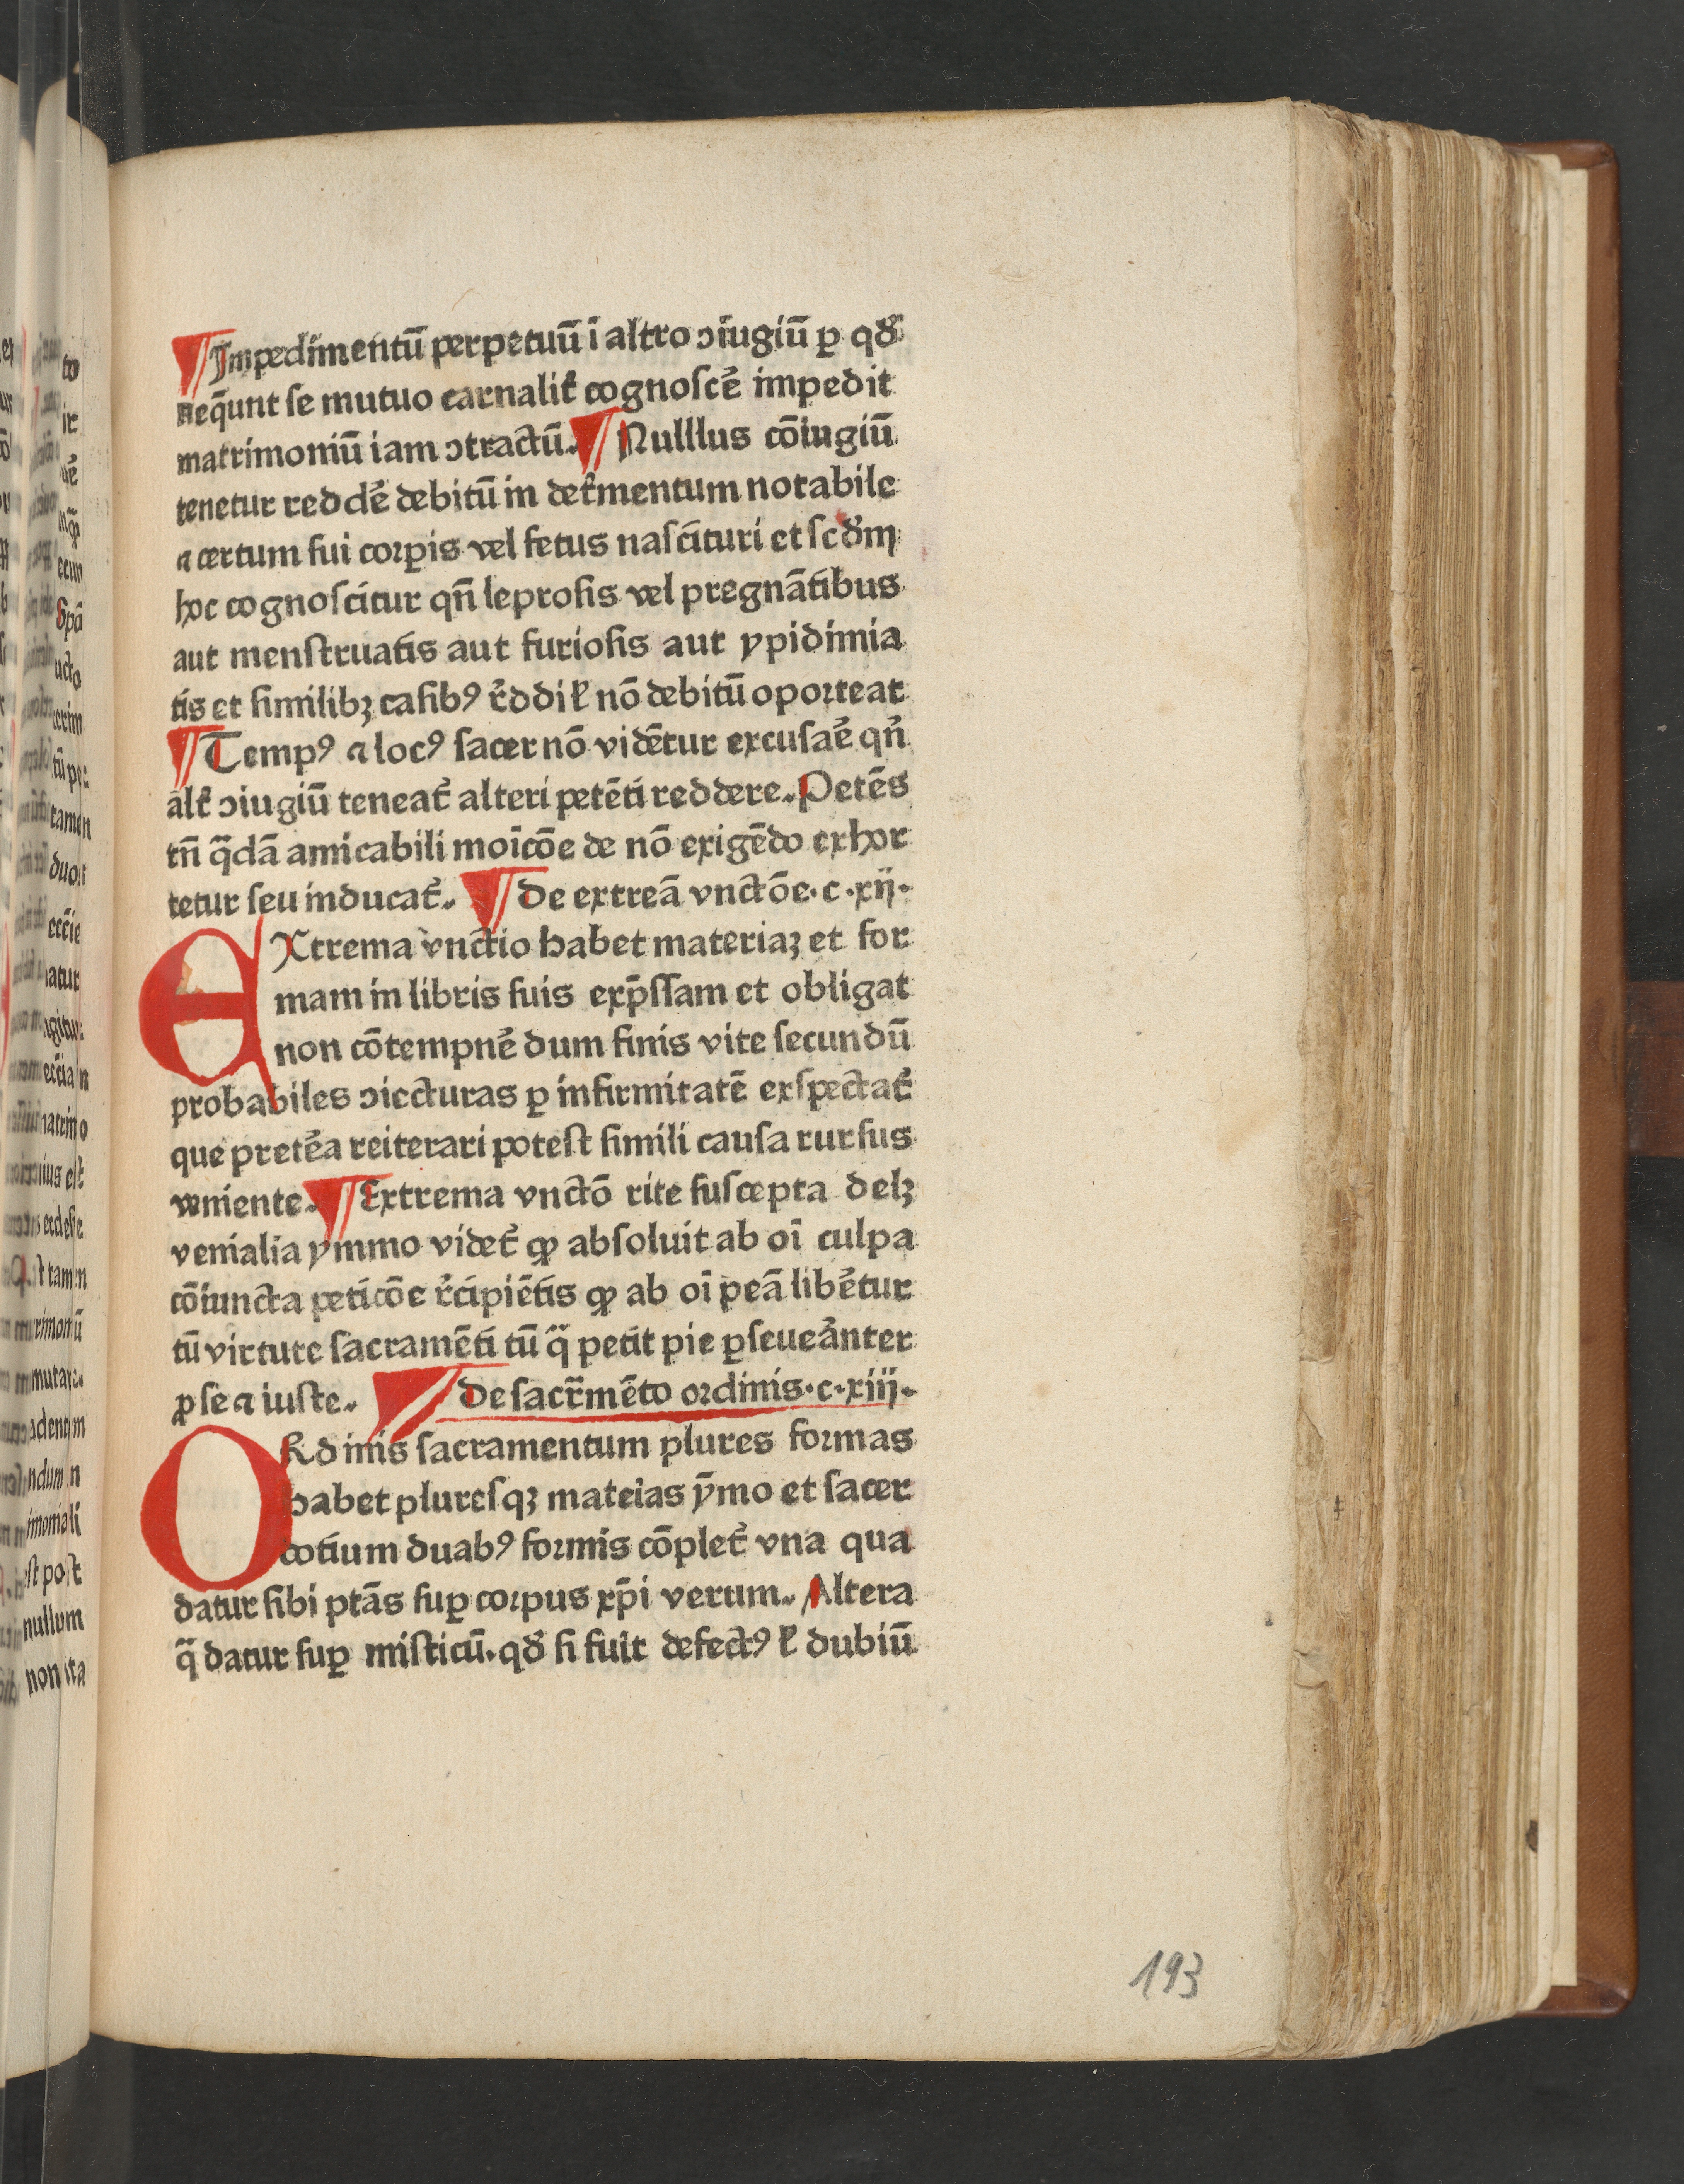 ¶Impedimentū perpetuū ī altro ↄiugiū ꝑ qđ
neq̄unt ſe mutuo carnalit᷑ cognoſce᷑ impedit
matrimoniū iam ↄtractū. ¶ Nulllus cōiugiū
tenetur redde᷑ debitū in det᷑mentum notabile
⁊ certum ſui corꝑis vel fetus naſcituri et ſcd᷑m
hoc cognoſcitur qn̄ leproſis vel pregnātibus
aut menſtruatis aut furioſis aut ypidimia
tis et ſimilibꝫ caſibꝰ r᷑ddi ł nō debitū oporteat
¶ Tempꝰ ⁊ locꝰ ſacer nō vidētur excuſae᷑ qn᷑
alt᷑ ↄiugiū teneat᷑ alteri petēti reddere. Petēs
tn̄ q̄dā amicabili moīcōe de nō exigēdo exhor
tetur ſeu inducat᷑. ¶ De extreā vnctōe. c. xij.
EXtrema vnctio habet materiaꝫ et for
mam in libris ſuis exp̄ſſam et obligat
non cōtempne᷑ dum finis vite ſecundū
probabiles ↄiecturas ꝑ infirmitatē exſpectat᷑
que prete᷑a reiterari poteſt ſimili cauſa rurſus
veniente. ¶ Extrema vnctō rite ſuſcepta delꝫ
venialia ymmo videt᷑ ꝙ abſoluit ab oī culpa
cōiuncta peticōe r᷑cipiētis ꝙ ab oī peā libe᷑tur
tū virtute ſacramēti tū q̄ petit pie ꝑſeuea᷑nter
ꝓ ſe ⁊ iuſte. ¶ De ſacr̄mēto ordinis. c. xiij.
ORdinis ſacramentum plures formas
habet plureſqꝫ mateias ȳmo et ſacer
dotium duabꝰ formis cōplet᷑ vna qua
datur ſibi ptās ſuꝑ corpus xp̄i verum. Altera
q̄ datur ſuꝑ miſticū. qđ ſi fuit defectꝰ ł dubiū
193